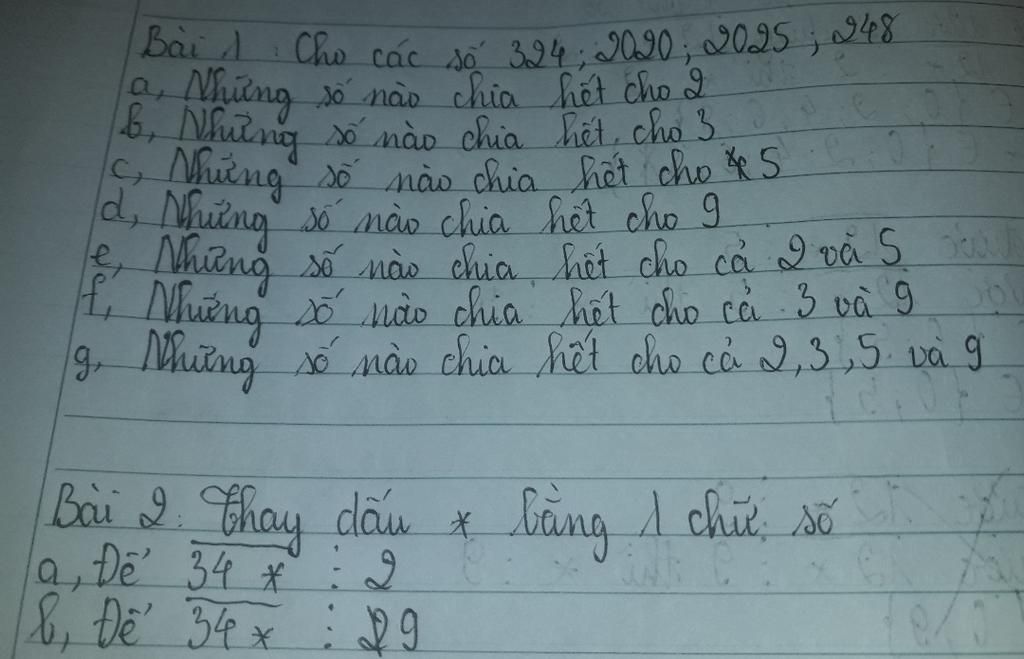 Bài 1: Cho các số 324; 2020; 2025; 248
a, Những số nào chia hết cho 2
b, Những số nào chia hết cho 3
c, Những số nào chia hết cho 5
d, Những số nào chia hết cho 9
e, Những số nào chia hết cho cả 2 và 5
f, Những số nào chia hết cho cả 3 và 9
g, Những số nào chia hết cho cả 2, 3, 5 và 9
Bài 2: Thay dấu * bằng 1 chữ số
a, Để 34* ⋮ 2
b, Để 34* ⋮ 9